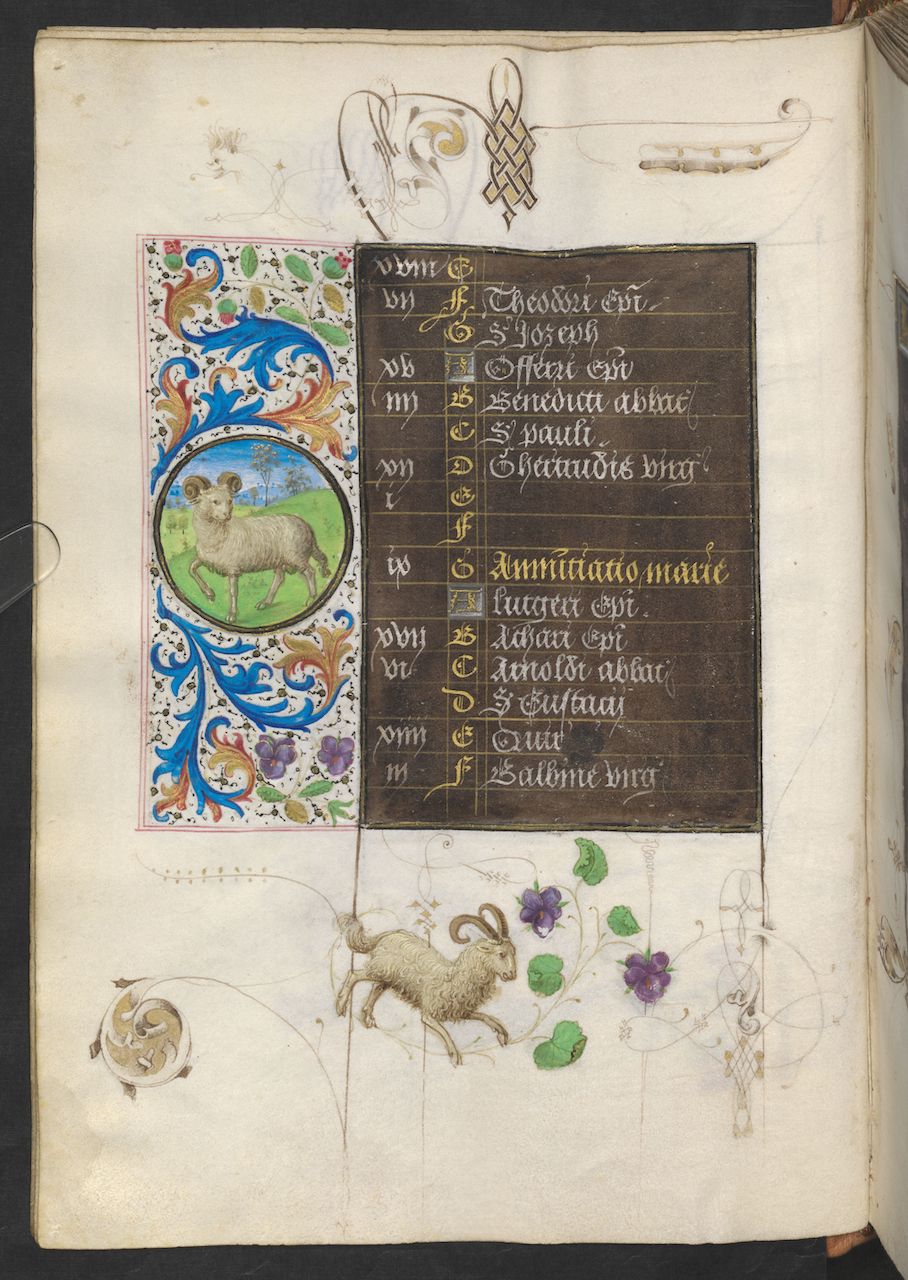 xviii E
vii F Theodori Epi
G S Jozeph
xv A Offerri Epi
iiii B Benedicti abbat
C S pauli
xii D Ghertrudis virg
i E
F
ix G Annuntiatio marie
A lutgeri Epi
xvii B Achari Epi
vi C Arnoldi abbat
D S Eustacij
xiiii E Quir
iii F Balbine virg